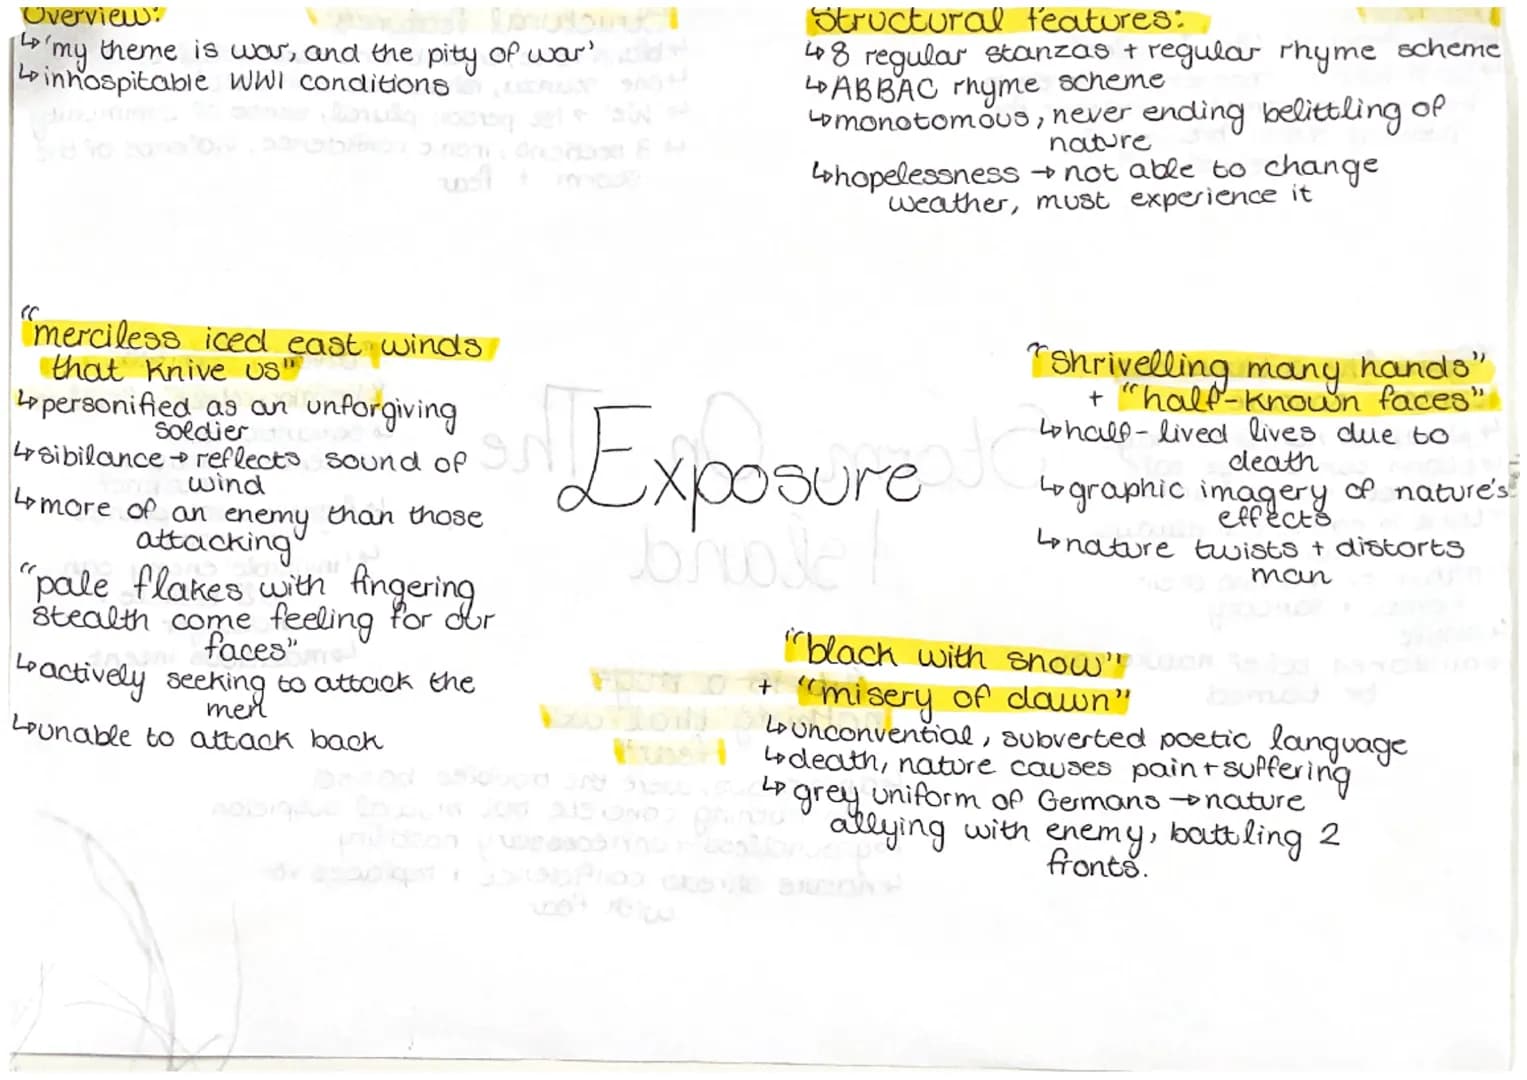 Overview:
↳'my theme is war, and the pity of war'
↳inhospitable WWI conditions
Structural features:
↳8 regular stanzas + regular rhyme scheme
↳ABBAC rhyme scheme
↳monotomous, never ending belittling of
nature
↳hopelessness → not able to change
weather, must experience it
"merciless iced east winds
that knive us"
↳personified as an unforgiving
soldier
↳sibilance → reflects sound of
wind
↳more of an enemy than those
attacking
"pale flakes with fingering
stealth come feeling for our
faces"
↳actively seeking to attack the
men
↳unable to attack back
Exposure
"Shrivelling many hands"
+ "half-known faces"
↳half-lived lives due to
death
↳graphic imagery of nature's
effects
↳nature twists + distorts
man
"black with snow"
+ "misery of dawn"
↳unconvential, subverted poetic language
↳death, nature causes pain + suffering
↳grey uniform of Germans → nature
allying with enemy, battling 2
fronts.